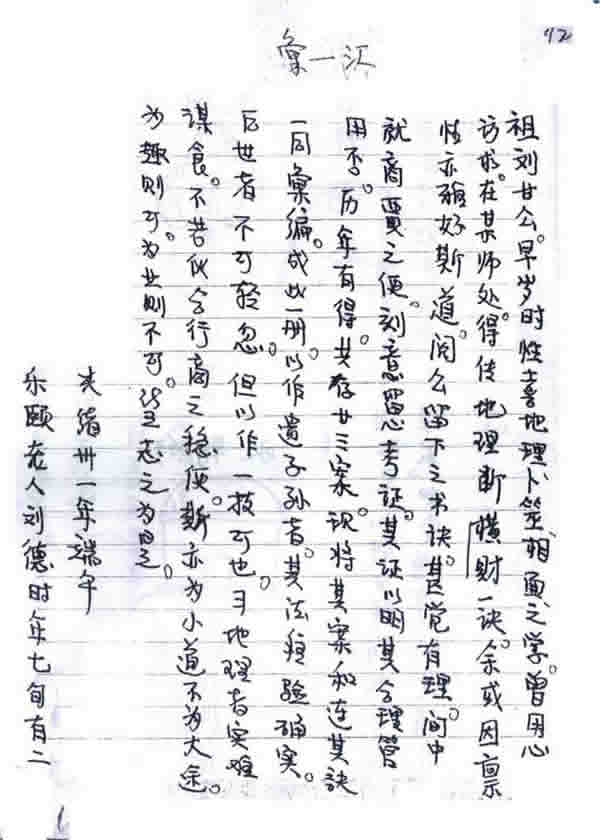 42
彙一汇
祖刘廿公。早岁时性喜地理卜筮相面之学。曾用心
访求。在某师处。得传地理断横财一诀。余或因禀
性亦雅好斯道。阅公留下之书诀。甚觉有理。间中
就商贾之便。刻意留思考证。其证以明其合理管
用否。历年有得。共存廿三案。现将其案和连其诀
一同彙编。成此一册。以作遗子孙者。其法经验确实。
后世者不可轻忽。但以作一技可也。习地理者实难
谋食。不若伙合行商之稳伙。斯亦为小道不为大途。
为趣则可。为业则不可。谨志之为是。
光绪卅一年端午
乐颐老人刘德时年七旬有二